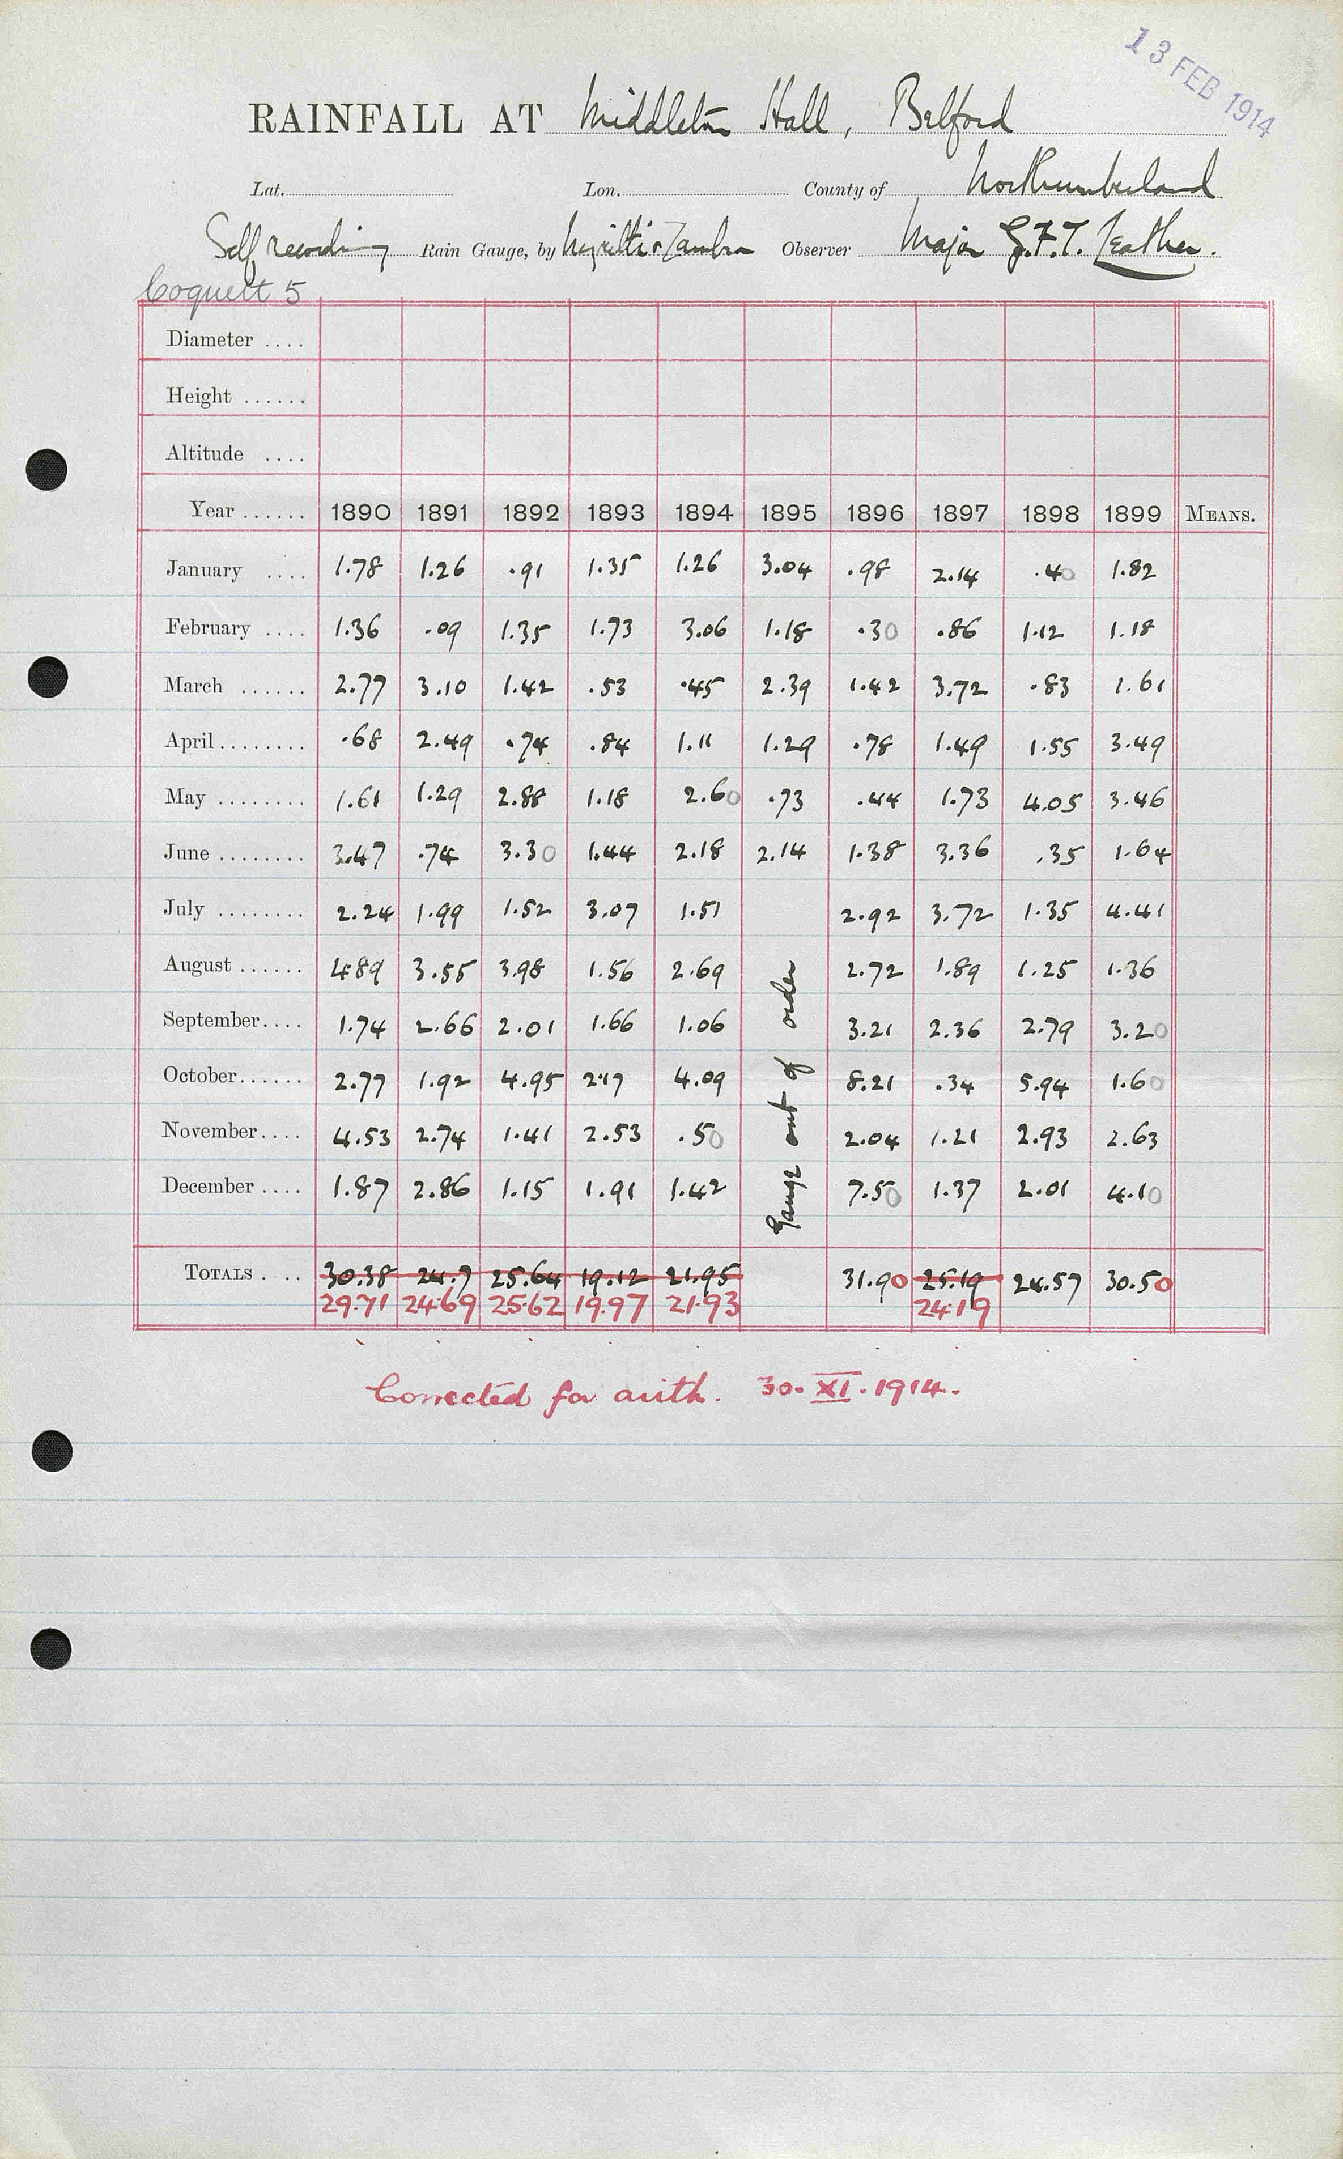 13 FEB 1914
RAINFALL AT Middleton Hall, Belford
Lat. Lon. County of Northumberland
Self recording Rain Gauge, by Negretti & Zambra Observer Major G.F.T. Leather.
Coquett 5
Diameter ....
Height ......
Altitude ....
Year ...... 1890 1891 1892 1893 1894 1895 1896 1897 1898 1899 MEANS.
January .... 1.78 1.26 .91 1.35 1.26 3.04 .98 2.14 .40 1.82
February .... 1.36 .09 1.35 1.73 3.06 1.18 .30 .86 1.12 1.18
March ...... 2.77 3.10 1.42 .53 .45 2.39 1.42 3.72 .83 1.61
April ........ .68 2.49 .74 .84 1.11 1.29 .78 1.49 1.55 3.49
May ........ 1.61 1.29 2.88 1.18 2.60 .73 .44 1.73 4.05 3.46
June ........ 3.47 .74 3.30 1.44 2.18 2.14 1.38 3.36 .35 1.64
July ........ 2.24 1.99 1.52 3.07 1.51 2.92 3.72 1.35 4.41
August ...... 4.89 3.55 3.98 1.56 2.69 2.72 1.89 1.25 1.36
September .... 1.74 2.66 2.01 1.66 1.06 3.21 2.36 2.79 3.20
October ...... 2.77 1.92 4.95 2.17 4.09 8.21 .34 5.94 1.60
November .... 4.53 2.74 1.41 2.53 .50 2.04 1.21 2.93 2.63
December .... 1.87 2.86 1.15 1.91 1.42 7.50 1.37 2.01 4.10
Gauge out of order
TOTALS .... 30.38 24.7 25.64 19.12 21.95 31.90 25.19 24.57 30.50
29.71 24.69 25.62 19.97 21.93 24.19
Corrected for arith. 30. XI. 1914.